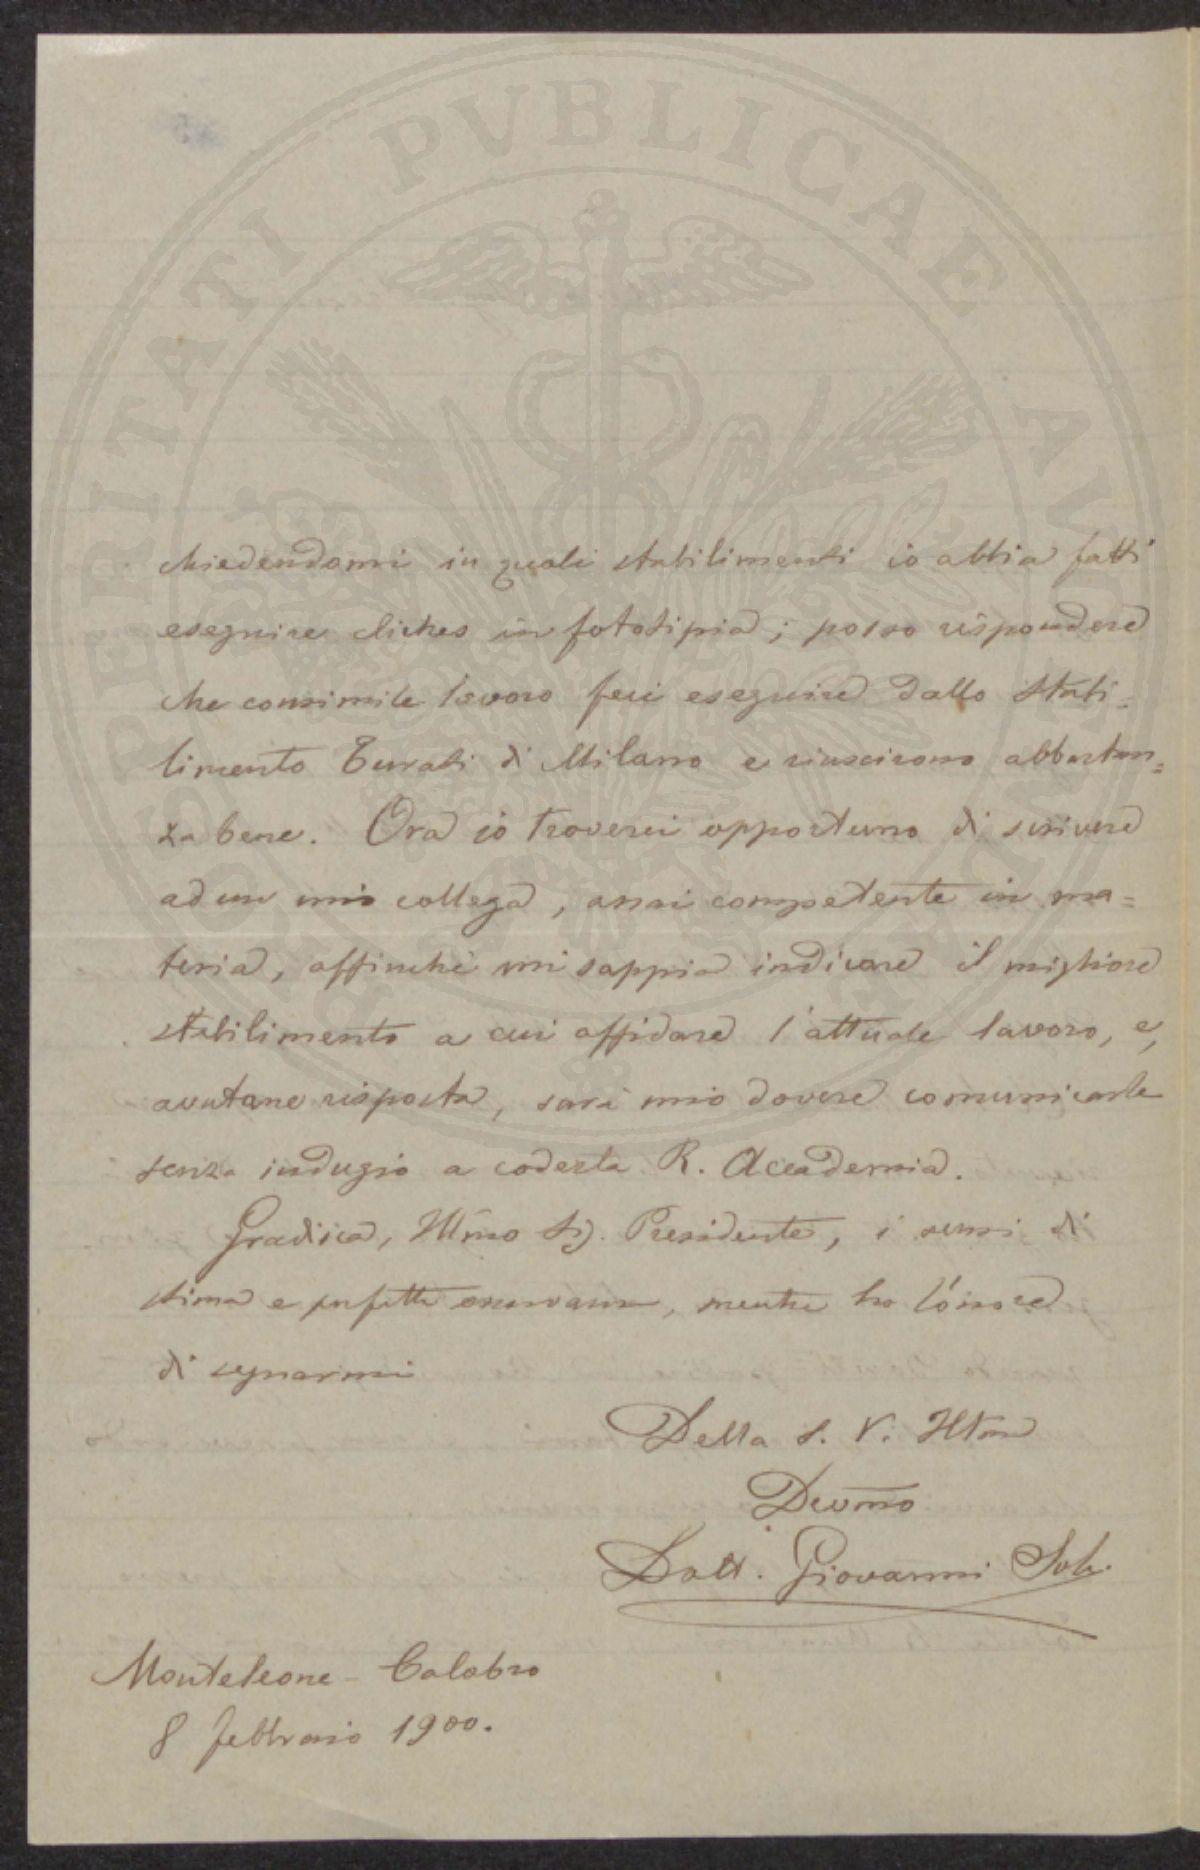 PROSPERITATI PUBLICAE AUGENDAE
chiedendomi in quali stabilimenti io abbia fatti
eseguire cliches in fototipia; posso rispondere
che consimile lavoro feci eseguire dallo Stabi=
limento Turati di Milano e riuscirono abbastan=
za bene. Ora io troverei opportuno di scrivere
ad un mio collega, assai competente in ma=
teria, affinchè mi sappia indicare il migliore
stabilimento a cui affidare l'attuale lavoro, e,
avutane risposta, sarà mio dovere comunicarla
senza indugio a codesta R. Accademia.
Gradisca, Illmo Sig. Presidente, i sensi di
stima e perfetta osservanza, mentre ho l'onore
di segnarmi
Della S. V. Illma
Devmo
Dott. Giovanni Sole
Monteleone - Calabro
8 febbraio 1900.